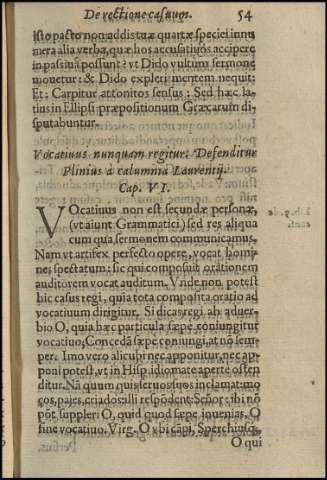 De rectione casuum. 54
isto pacto non addis tuæ quartæ speciei innu
mera alia verba, quæ hos accusatiuos accipere
in passiua possunt? vt Dido vultum sermone
mouetur: & Dido expleri mentem nequit:
Et: Carpitur attonitos sensus: Sed hæc la-
tius in Ellipsi præpositionum Græcarum di-
sputabuntur.
Vocatiuus nunquam regitur. Defenditur
Plinius à calumnia Laurentij.
Cap. VI.
VOcatiuus non est secundæ personæ,
(vt aiunt Grammatici) sed res aliqua
cum qua sermonem communicamus.
Nam vt artifex perfecto opere, vocat homi-
nes spectatum: sic qui composuit orationem
auditorem vocat auditum. Vnde non potest
hic casus regi, quia tota composita oratio ad
vocatiuum dirigitur. Si dicas regi ab aduer-
bio O, quia hæc particula sæpe coniungitur
vocatiuo; Concedã sæpe coniungi, at nõ sem-
per: Imo vero alicubi nec apponitur, nec ap-
poni potest, vt in Hisp. idiomate aperte osten
ditur. Nã quum quis seruos suos inclamat: mo
ços, pajes, criados: illi respõdent: Señor: ibi nõ
põt suppleri O, quid quod sæpe inuenias, O
sine vocatiuo. Virg. O vbi cãpi, Sperchiusq;
O qui